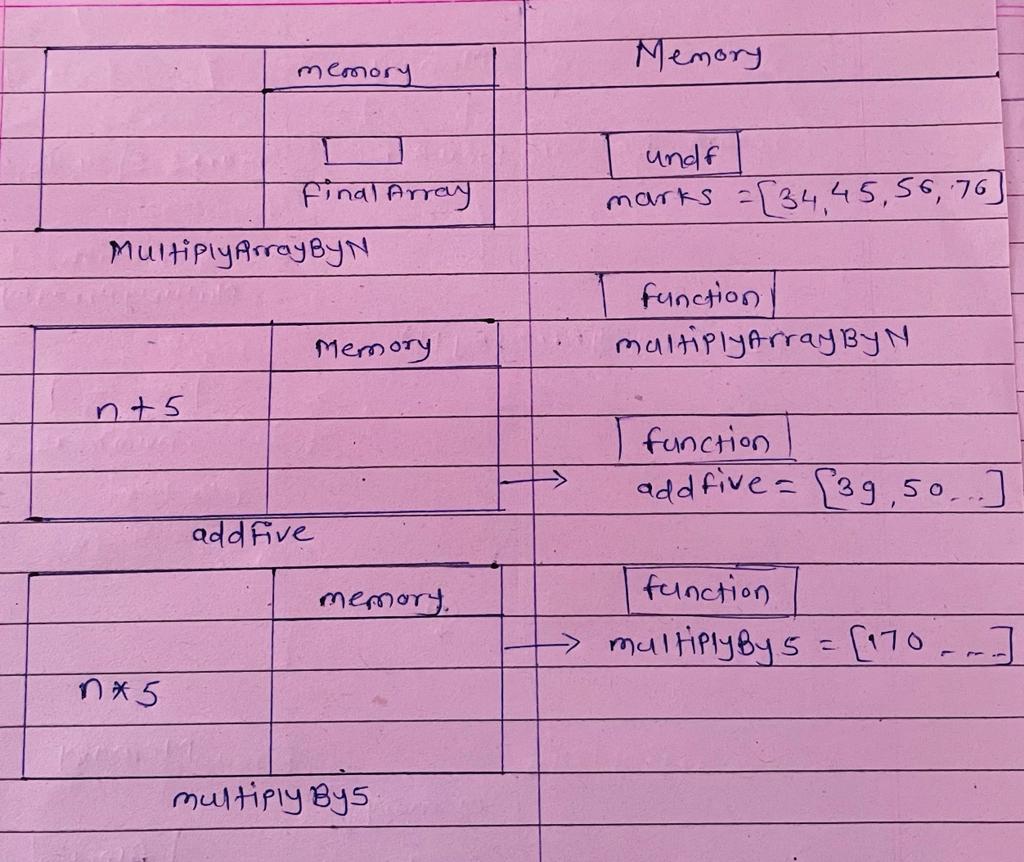 memory
finalArray
MultiplyArrayByN
Memory
n + 5
addFive
memory.
n * 5
multiplyBy5
Memory
undf
marks = [34, 45, 56, 76]
function
multiplyArrayByN
function
addfive = [39, 50...]
function
multiplyBy5 = [170 ----]